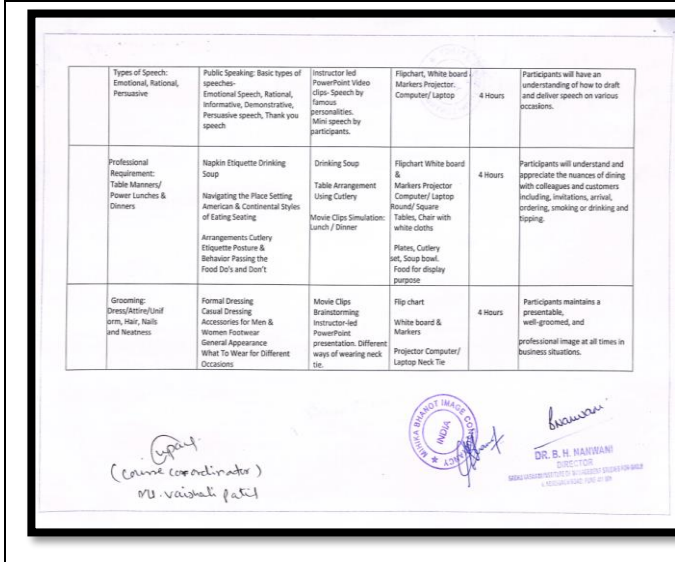 Types of Speech:
Emotional, Rational,
Persuasive
Public Speaking: Basic types of
speeches-
Emotional Speech, Rational,
Informative, Demonstrative,
Persuasive speech, Thank you
speech
Instructor led
PowerPoint Video
clips- Speech by
famous
personalities.
Mini speech by
participants.
Flipchart, White board
Markers Projector.
Computer/ Laptop
4 Hours
Participants will have an
understanding of how to draft
and deliver speech on various
occasions.
Professional
Requirement:
Table Manners/
Power Lunches &
Dinners
Napkin Etiquette Drinking
Soup
Navigating the Place Setting
American & Continental Styles
of Eating Seating
Arrangements Cutlery
Etiquette Posture &
Behavior Passing the
Food Do's and Don't
Drinking Soup
Table Arrangement
Using Cutlery
Movie Clips Simulation:
Lunch / Dinner
Flipchart White board
&
Markers Projector
Computer/ Laptop
Round/ Square
Tables, Chair with
white cloths
Plates, Cutlery
set, Soup bowl.
Food for display
purpose
4 Hours
Participants will understand and
appreciate the nuances of dining
with colleagues and customers
including, invitations, arrival,
ordering, smoking or drinking and
tipping.
Grooming:
Dress/Attire/Unif
orm, Hair, Nails
and Neatness
Formal Dressing
Casual Dressing
Accessories for Men &
Women Footwear
General Appearance
What To Wear for Different
Occasions
Movie Clips
Brainstorming
Instructor-led
PowerPoint
presentation. Different
ways of wearing neck
tie.
Flip chart
White board &
Markers
Projector Computer/
Laptop Neck Tie
4 Hours
Participants maintains a
presentable,
well-groomed, and
professional image at all times in
business situations.
(Course coordinator)
Ms. Vaishali Patil
MIHIKA BHANOT IMAGE CONSULTANCY
INDIA
DR. B. H. NANWANI
DIRECTOR